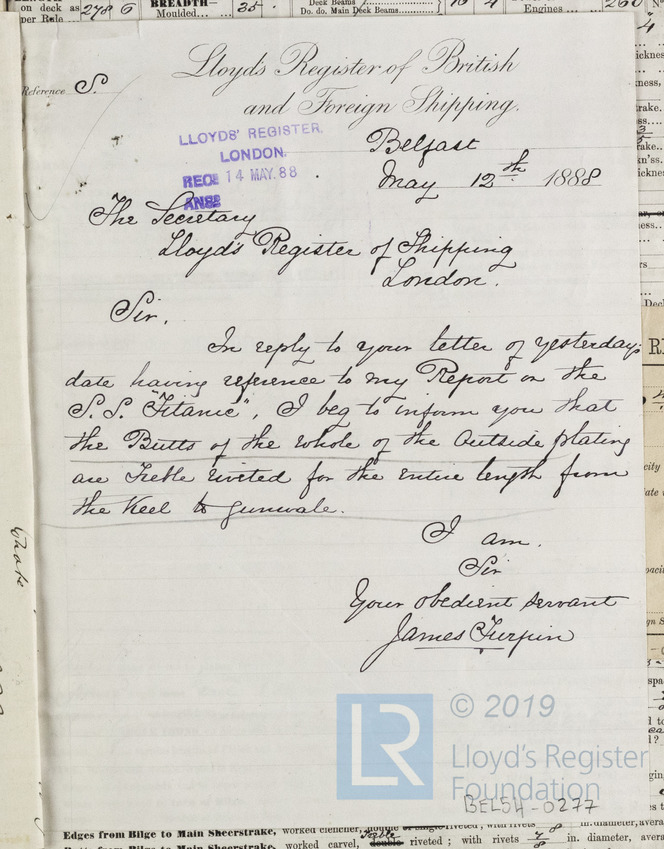 on deck as 278 6 BREADTH— 35. Deck Beams
per Rule ... Moulded... Do. do. Main Deck Beams Engines
Lloyd's Register of British
and Foreign Shipping.
Reference S.
LLOYDS' REGISTER.
LONDON.
REC 14 MAY. 88
ANS
Belfast
May 12th 1888
The Secretary
Lloyd's Register of Shipping
London.
Sir.
In reply to your letter of yesterdays
date having reference to my Report on the
S.S. "Titanic", I beg to inform you that
the Butts of the whole of the outside plating
are Treble riveted for the entire length from
the Keel to gunwale.
I am.
Sir
Your obedient servant
James Turpin
© 2019
LR
Lloyd's Register
Foundation
BEL54-0277
Edges from Bilge to Main Sheerstrake, worked clencher, double or single riveted; with rivets 7/8 in. diameter, avera
worked carvel, Treble double riveted; with rivets 7/8 in. diameter, avera